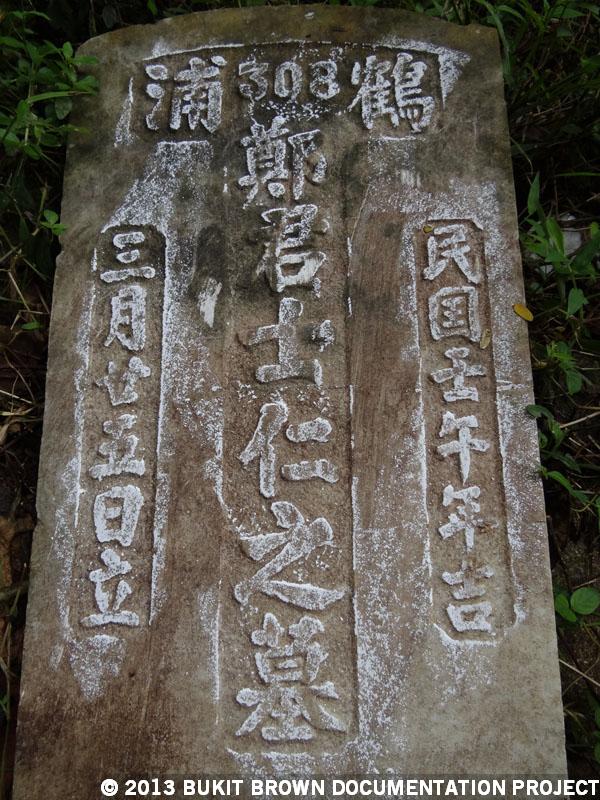 鶴 308 浦
民国壬午年吉
鄭君士仁之墓
三月廿五日立
© 2013 BUKIT BROWN DOCUMENTATION PROJECT